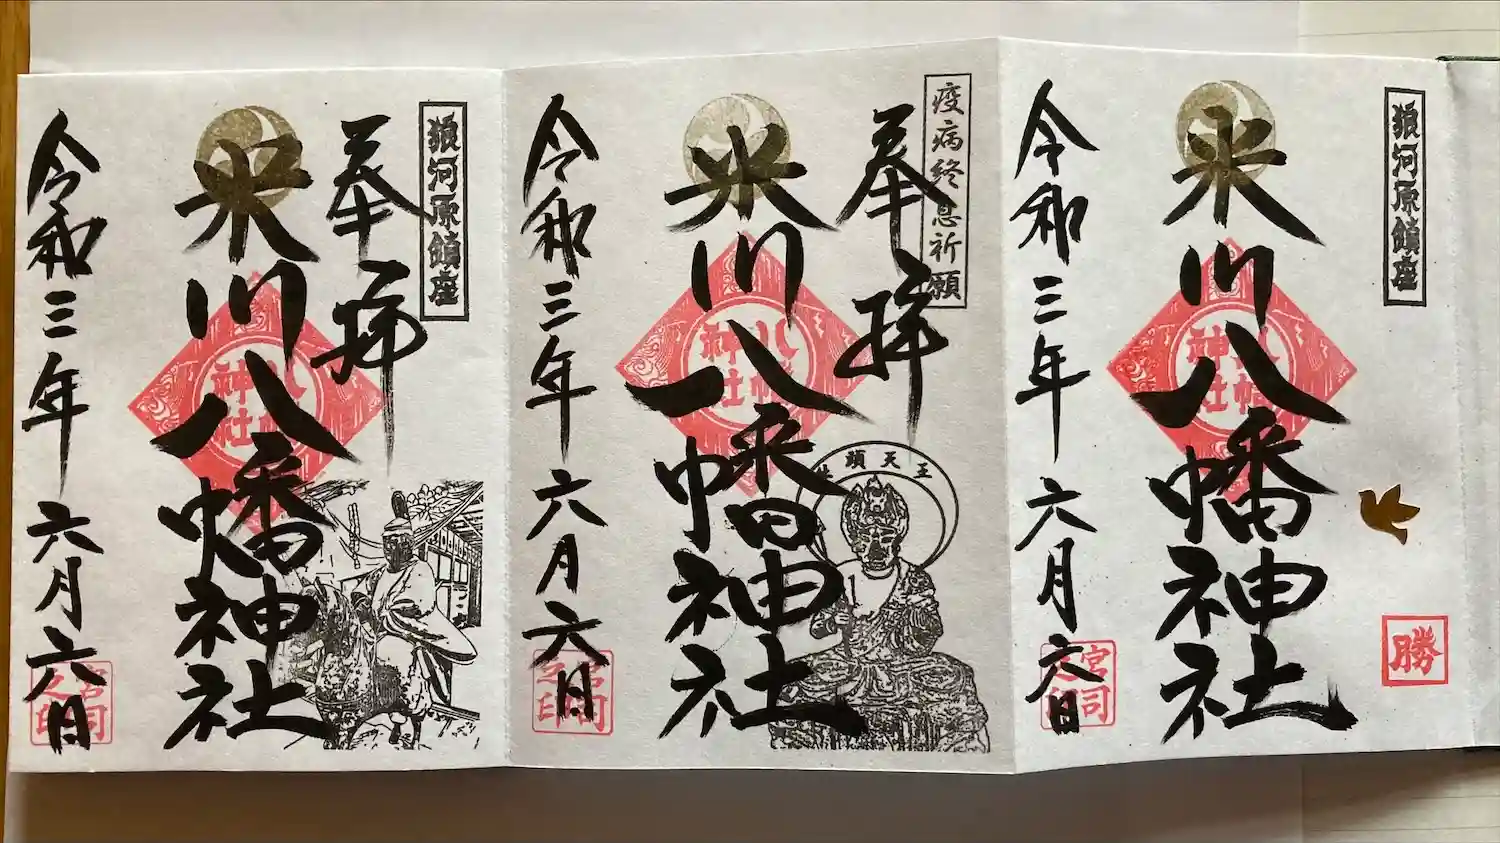 狼河原鎮座
勝
米川八幡神社
八幡神社
令和三年六月六日
宮司之印
疫病終息祈願
奉拝
米川八幡神社
八幡神社
牛頭天王
令和三年六月六日
宮司之印
狼河原鎮座
奉拝
米川八幡神社
八幡神社
令和三年六月六日
宮司之印